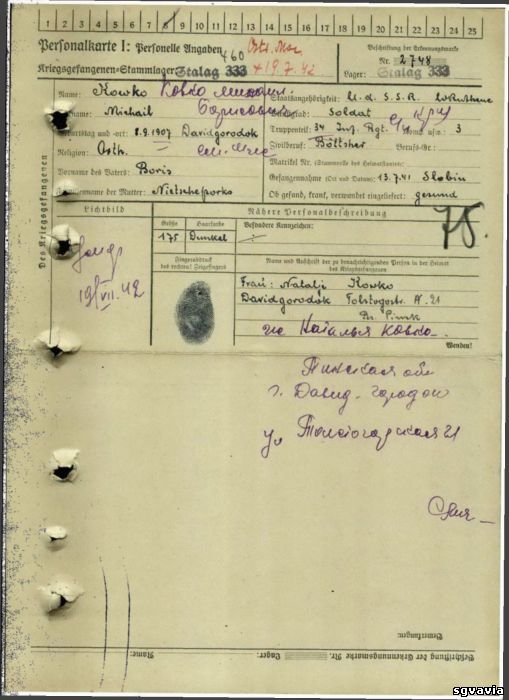 1 2 3 4 5 6 7 8 9 10 11 12 13 14 15 16 17 18 19 20 21 22 23 24 25
Personalkarte I: Personelle Angaben
460
Kriegsgefangenen-Stammlager: Stalag 333
+19.7.42
Beschriftung der Erkennungsmarke
Nr. 2748
Lager: Stalag 333
Des Kriegsgefangenen
Name: Kowko Ковко Михаил
Vorname: Michail Борисович
Geburtstag und -ort: 8.9.1907 Davidgorodok
Religion: Orth.
Vorname des Vaters: Boris
Familienname der Mutter:
Staatsangehörigkeit: U.d.S.S.R.
Dienstgrad: Soldat
Truppenteil: 34 Inf. Rgt. Komp. usw.: 3
Zivilberuf: Böttcher Berufs-Gr.:
Matrikel Nr. (Stammrolle des Heimatstaates):
Gefangennahme (Ort und Datum): 13.7.41 Slobin
Ob gesund, krank, verwundet eingeliefert: gesund
Lichtbild
Nähere Personalbeschreibung
Größe
Haarfarbe
Besondere Kennzeichen:
175
Dunkel
Fingerabdruck
des rechten! Zeigefingers
Name und Anschrift der zu benachrichtigenden Person in der Heimat
des Kriegsgefangenen
Frau: Natalji Kowko
Davidgorodok Tolstogostr. N.21
Bz. Pinsk
Наталья Ковко
Wenden!
19/VII.42
Пинская обл
г. Давид-городок
ул
21
Bemerkungen:
Beschriftung der Erkennungsmarke Nr.
Lager:
Name:
sgvavia